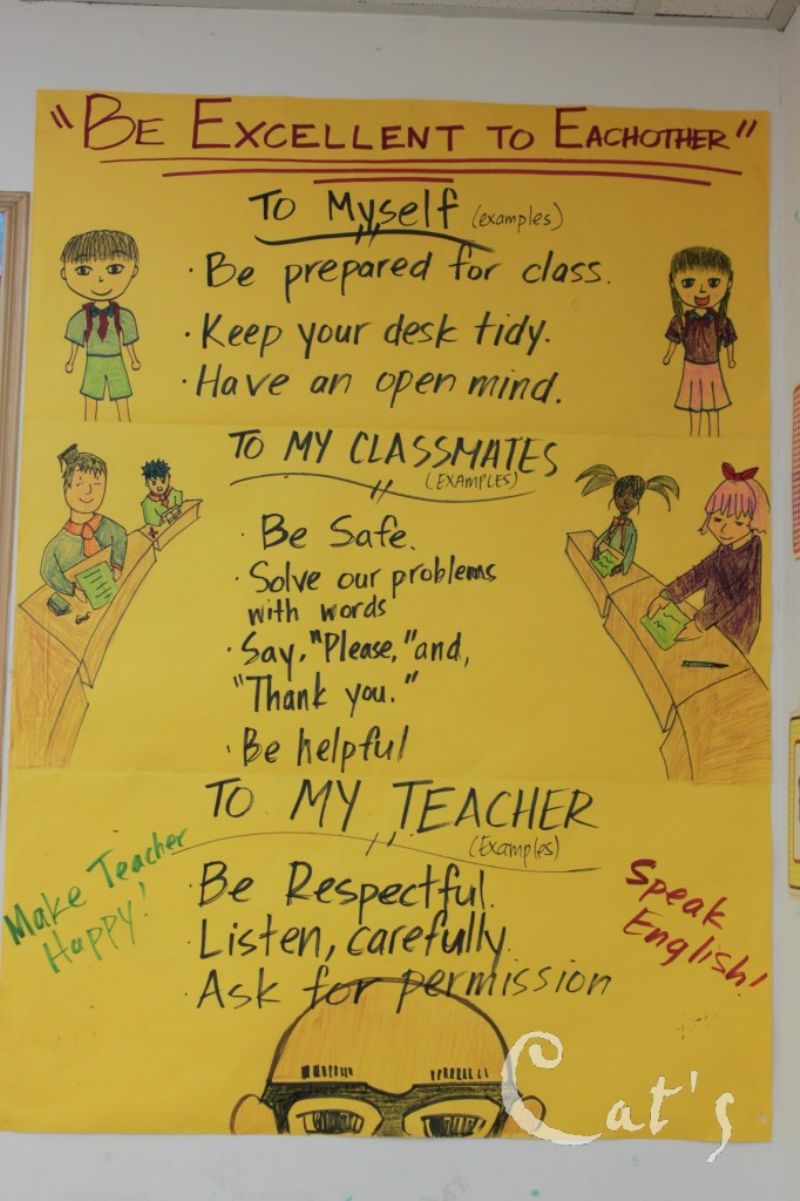 "BE EXCELLENT TO EACHOTHER"
To Myself (examples)
· Be prepared for class.
· Keep your desk tidy.
· Have an open mind.
TO MY CLASSMATES
(EXAMPLES)
· Be Safe.
· Solve our problems
with words
· Say, "Please," and,
"Thank you."
· Be helpful
TO MY TEACHER
(Examples)
Make Teacher
Happy!
· Be Respectful.
· Listen, carefully.
· Ask for permission
Speak
English!
Cat's